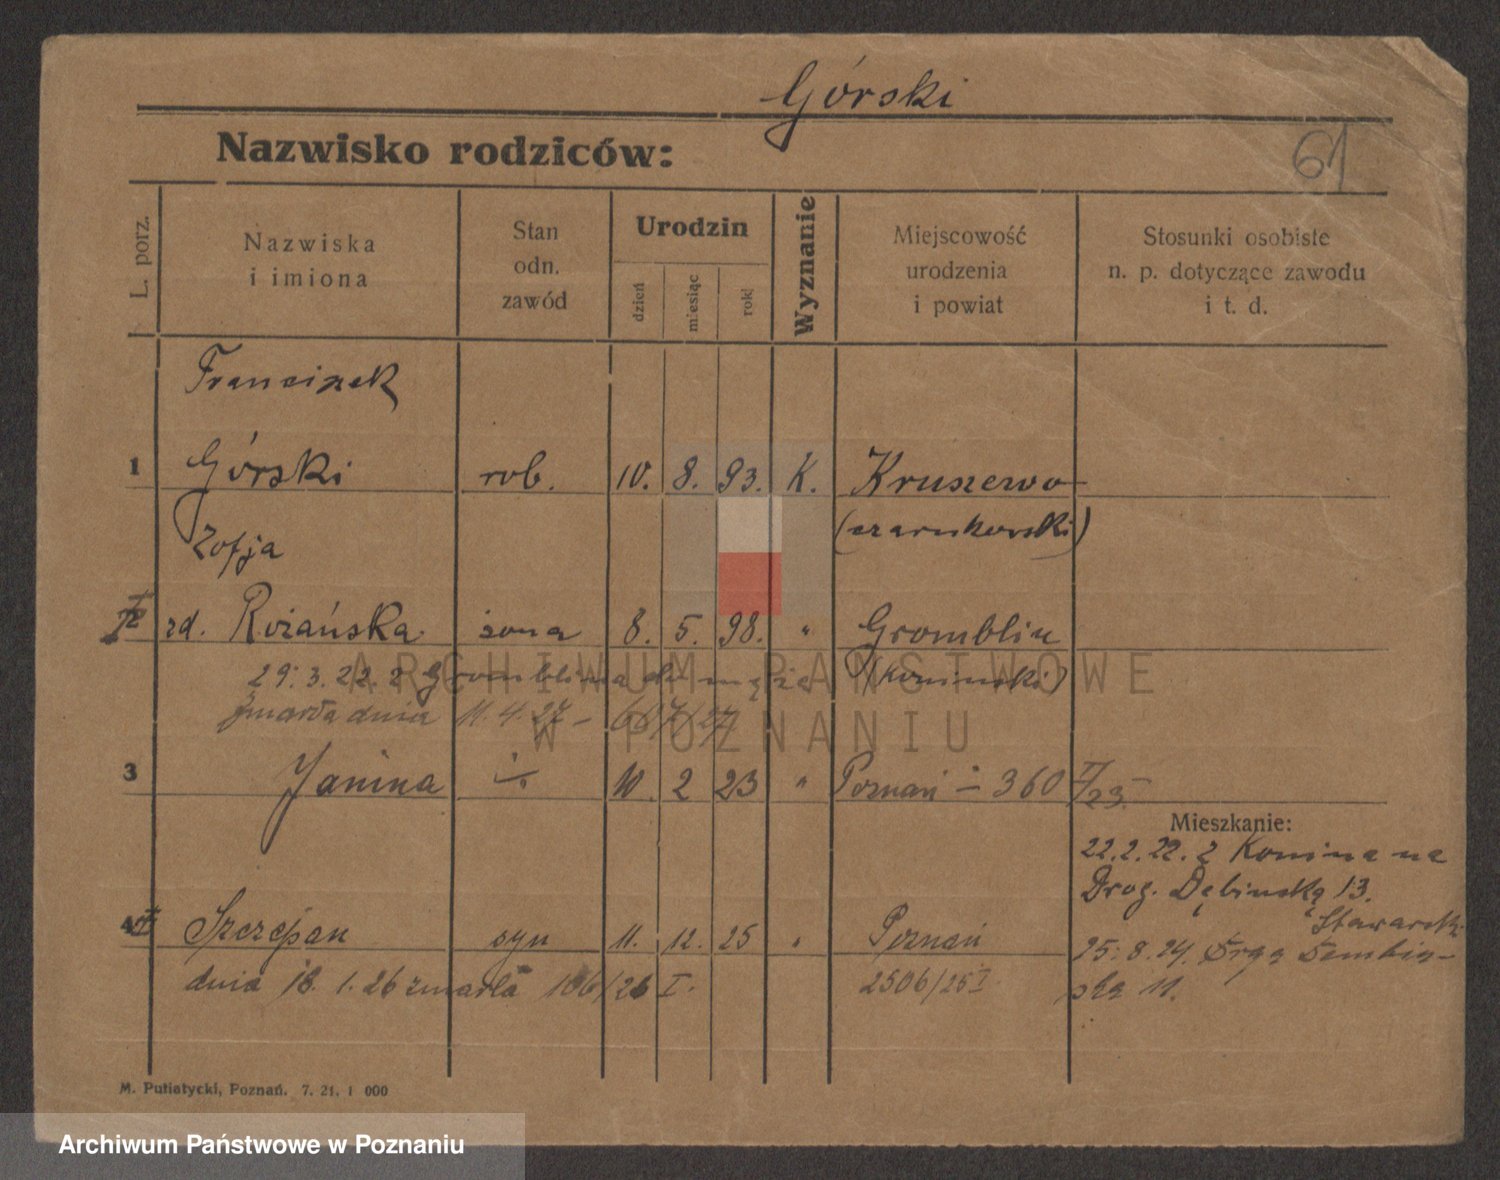 Górski
Nazwisko rodziców:
61
L. porz.
Nazwiska
i imiona
Stan
odn.
zawód
Urodzin
dzień
miesiąc
rok
Wyznanie
Miejscowość
urodzenia
i powiat
Stosunki osobiste
n. p. dotyczące zawodu
i t. d.
Franciszek
1 Górski rob. 10. 8. 93. K. Kruszewo
(czarnkowski)
Zofja
2 zd. Rożańska żona 8. 5. 98. " Gromblin
29. 3. 22. z Gromblina do męża (koniński)
zmarła dnia 11. 4. 27 -
3 Janina 10. 2 23 " Poznań - 360 I/23.
Mieszkanie:
22. 2. 22. z Konina na
Drog. Dębinską 13.
4 Szczepan syn 11. 12. 25 " Poznań
25. 8. 24. Drgą Dembiń-
ska 11.
dnia 18. 1. 26 zmarła 106/26 I. 2506/25 I
M. Putiatycki, Poznań. 7. 21. 1 000
ARCHIWUM PAŃSTWOWE
W POZNANIU
Archiwum Państwowe w Poznaniu